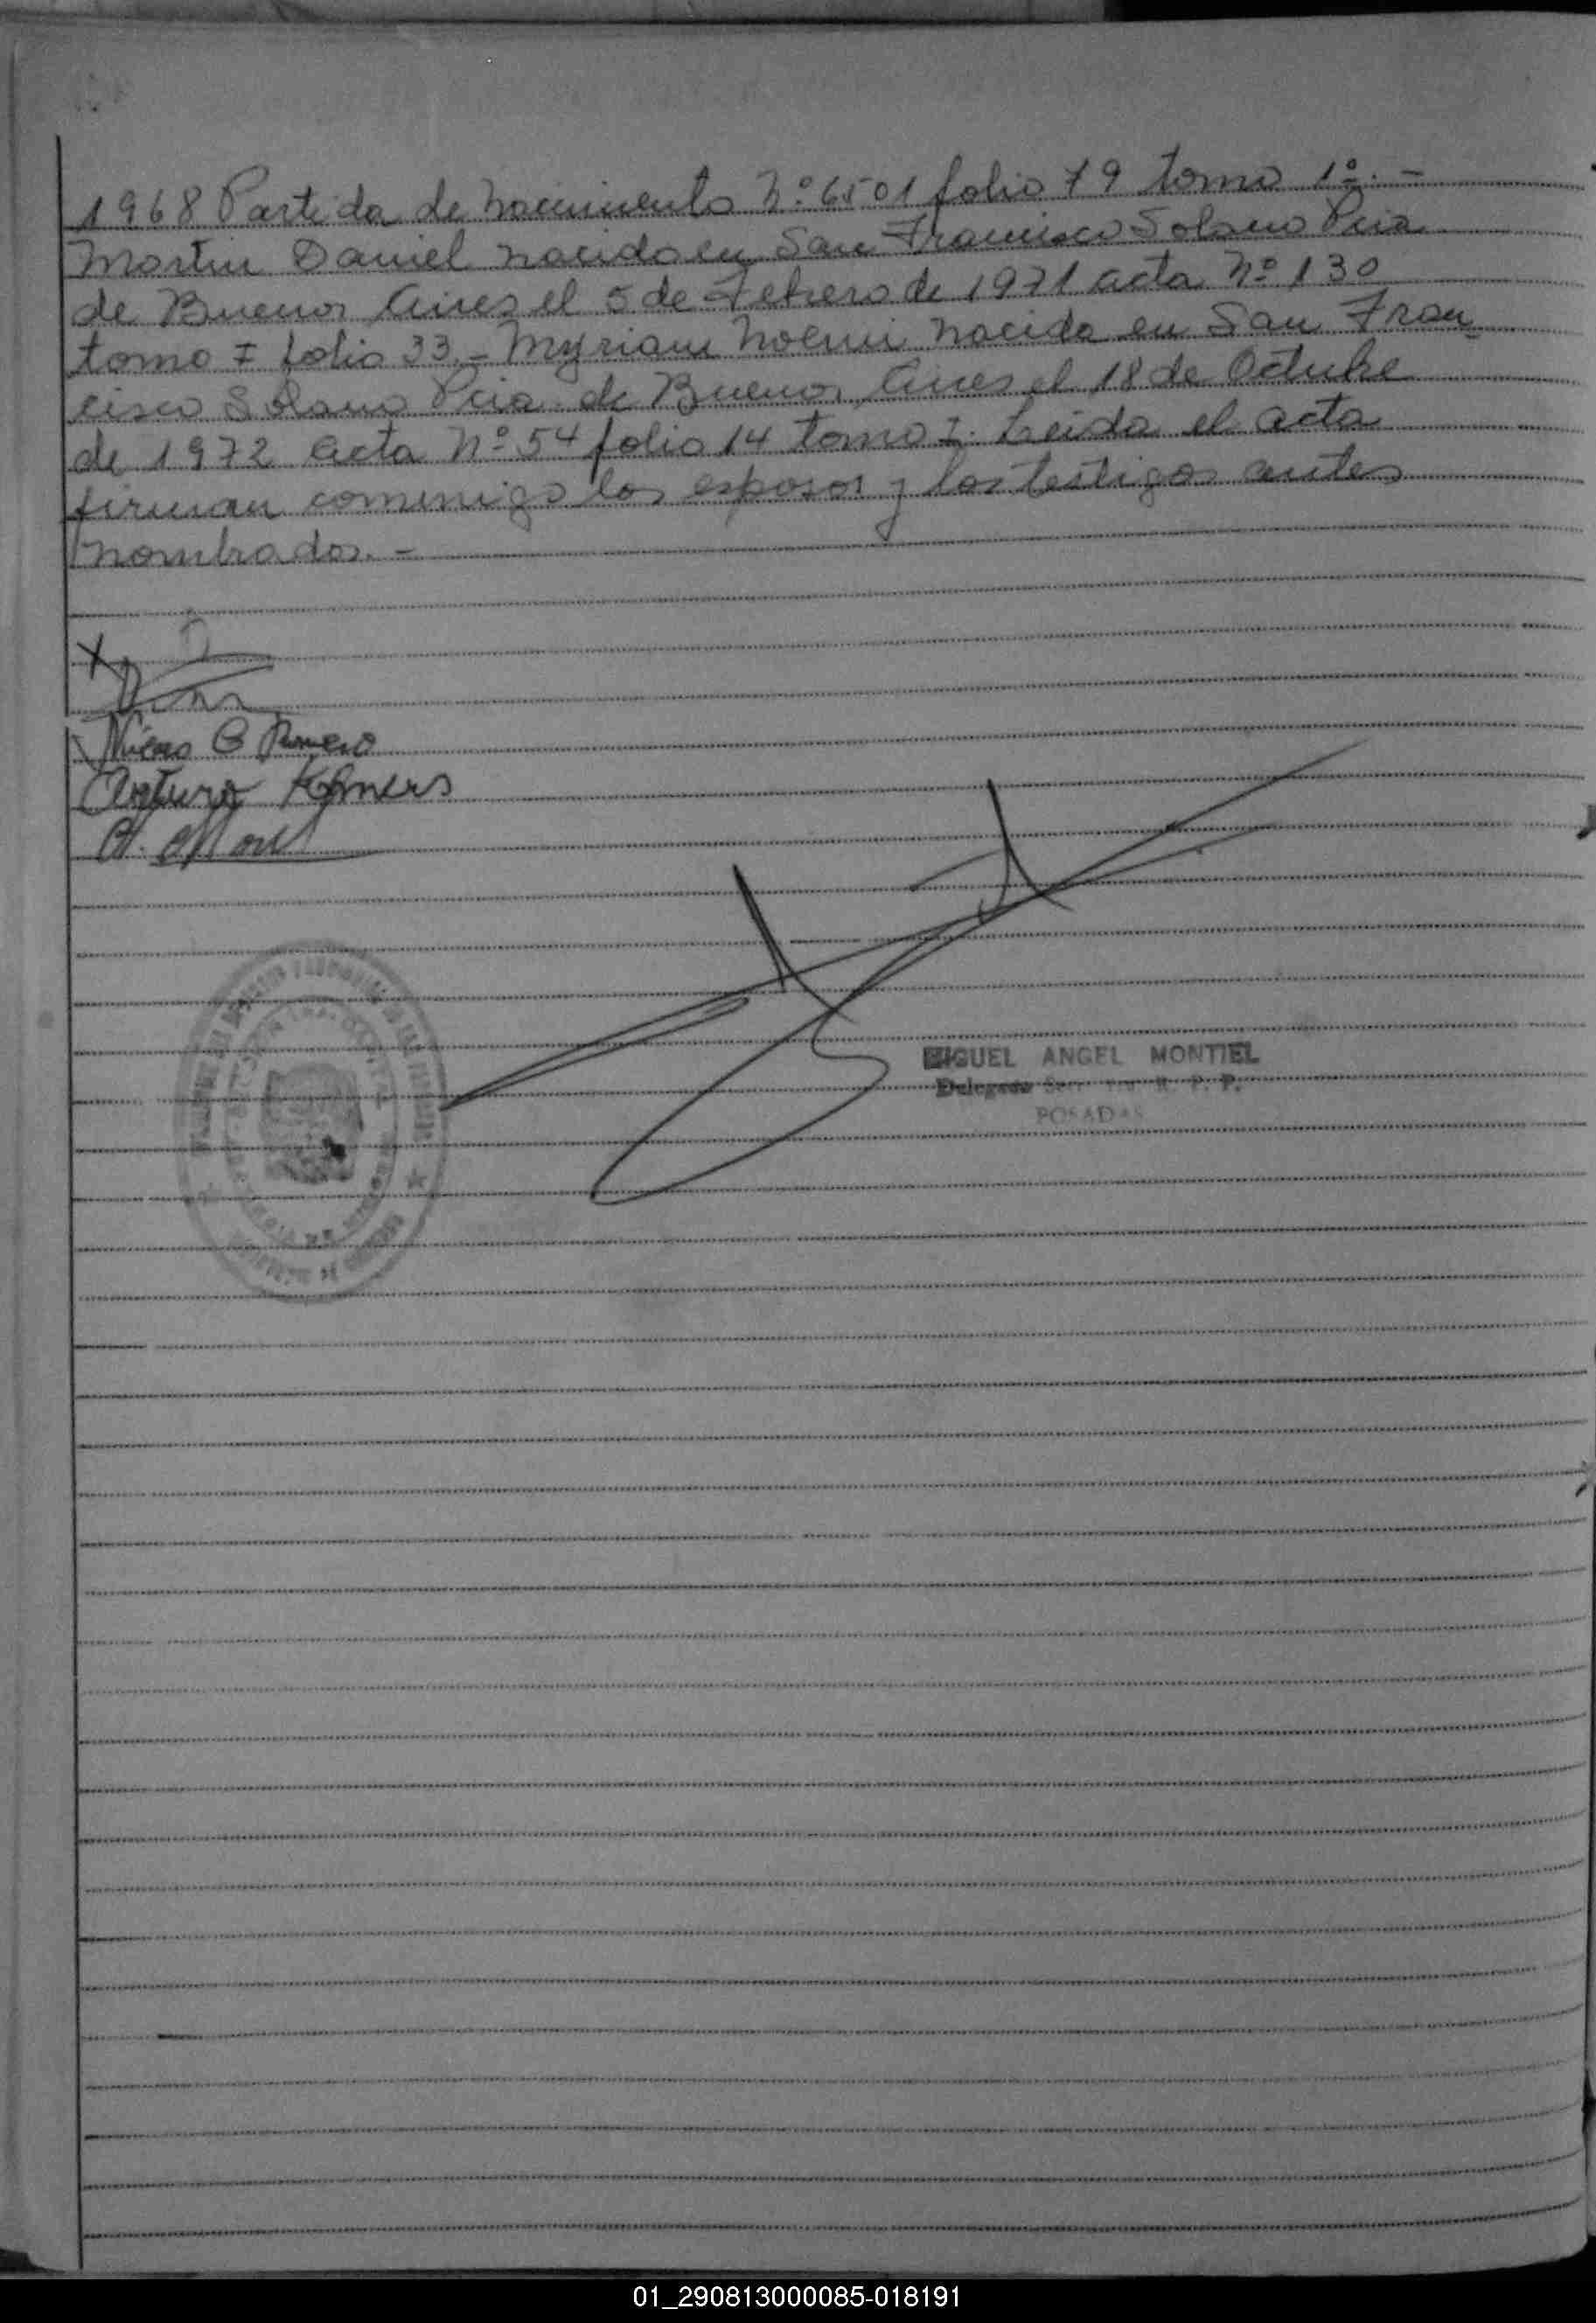 1968 Partida de Nacimiento Nº 6501 folio 79 tomo 1º.-
Martin Daniel nacido en San Francisco Solano Pcia
de Buenos Aires el 5 de Febrero de 1971 acta Nº 130
tomo I folio 33.- Myriam Noemi nacida en San Fran-
cisco Solano Pcia de Buenos Aires el 18 de Octubre
de 1972 acta Nº 54 folio 14 tomo I. Leida el acta
firman conmigo los esposos y los testigos antes
nombrados.-
X
Romero
Arturo
MIGUEL ANGEL MONTIEL
Delegado R. P. P.
POSADAS
01_290813000085-018191